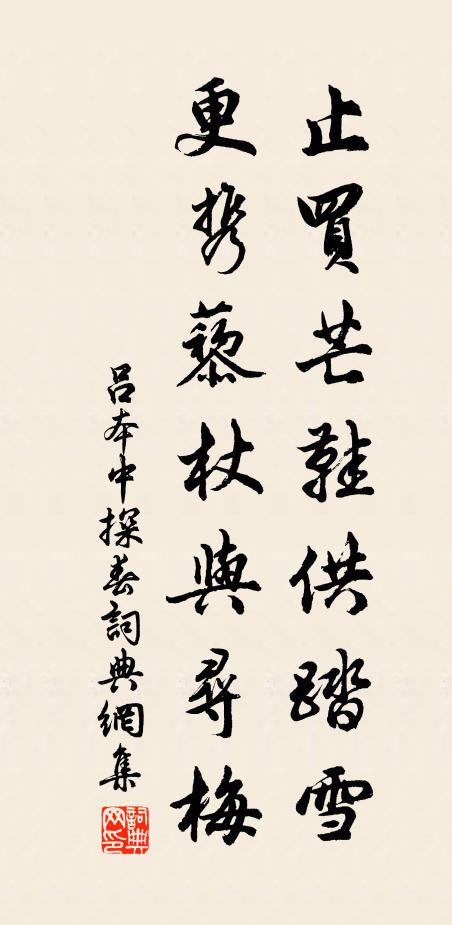 止買芒鞋供踏雪
更携藜杖與尋梅
吕本中探春詞典網集
詞典
网印